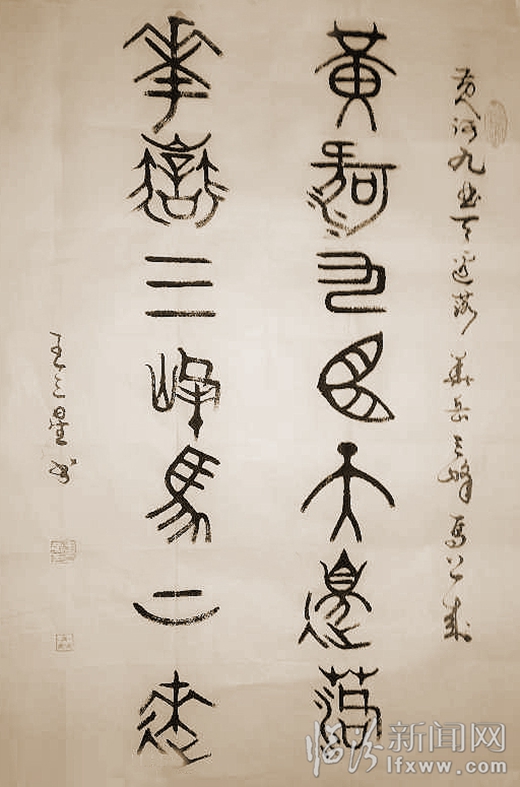 黄河九曲天边落華岳三峰馬上来
黄河九曲天邊落
華嶽三峰馬上來
王三星书
临汾新闻网
lfxww.com